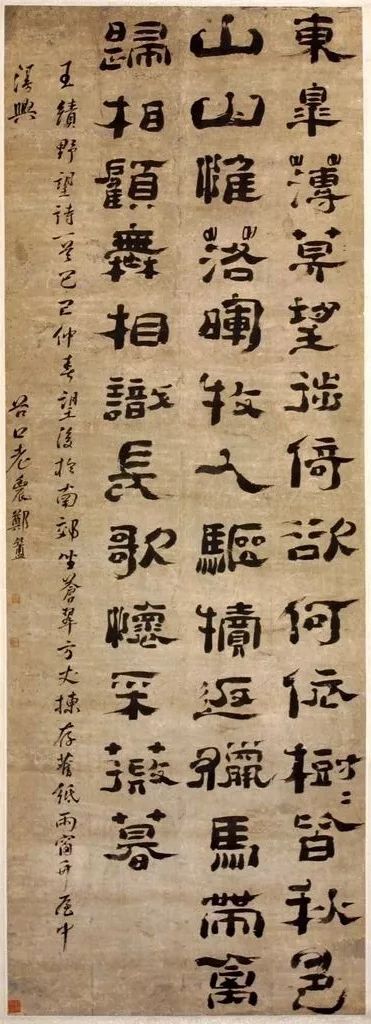 東皋薄莫望徙倚欲何依樹〻皆秋色
山山惟落暉牧人驅犢返獵馬帶禽
歸相顧無相識長歌懷采薇暮
王績野望詩一首己巳仲春望後於南郊坐蒼翠方丈揀存舊紙雨窗座中
漫興 谷口老農鄭簠